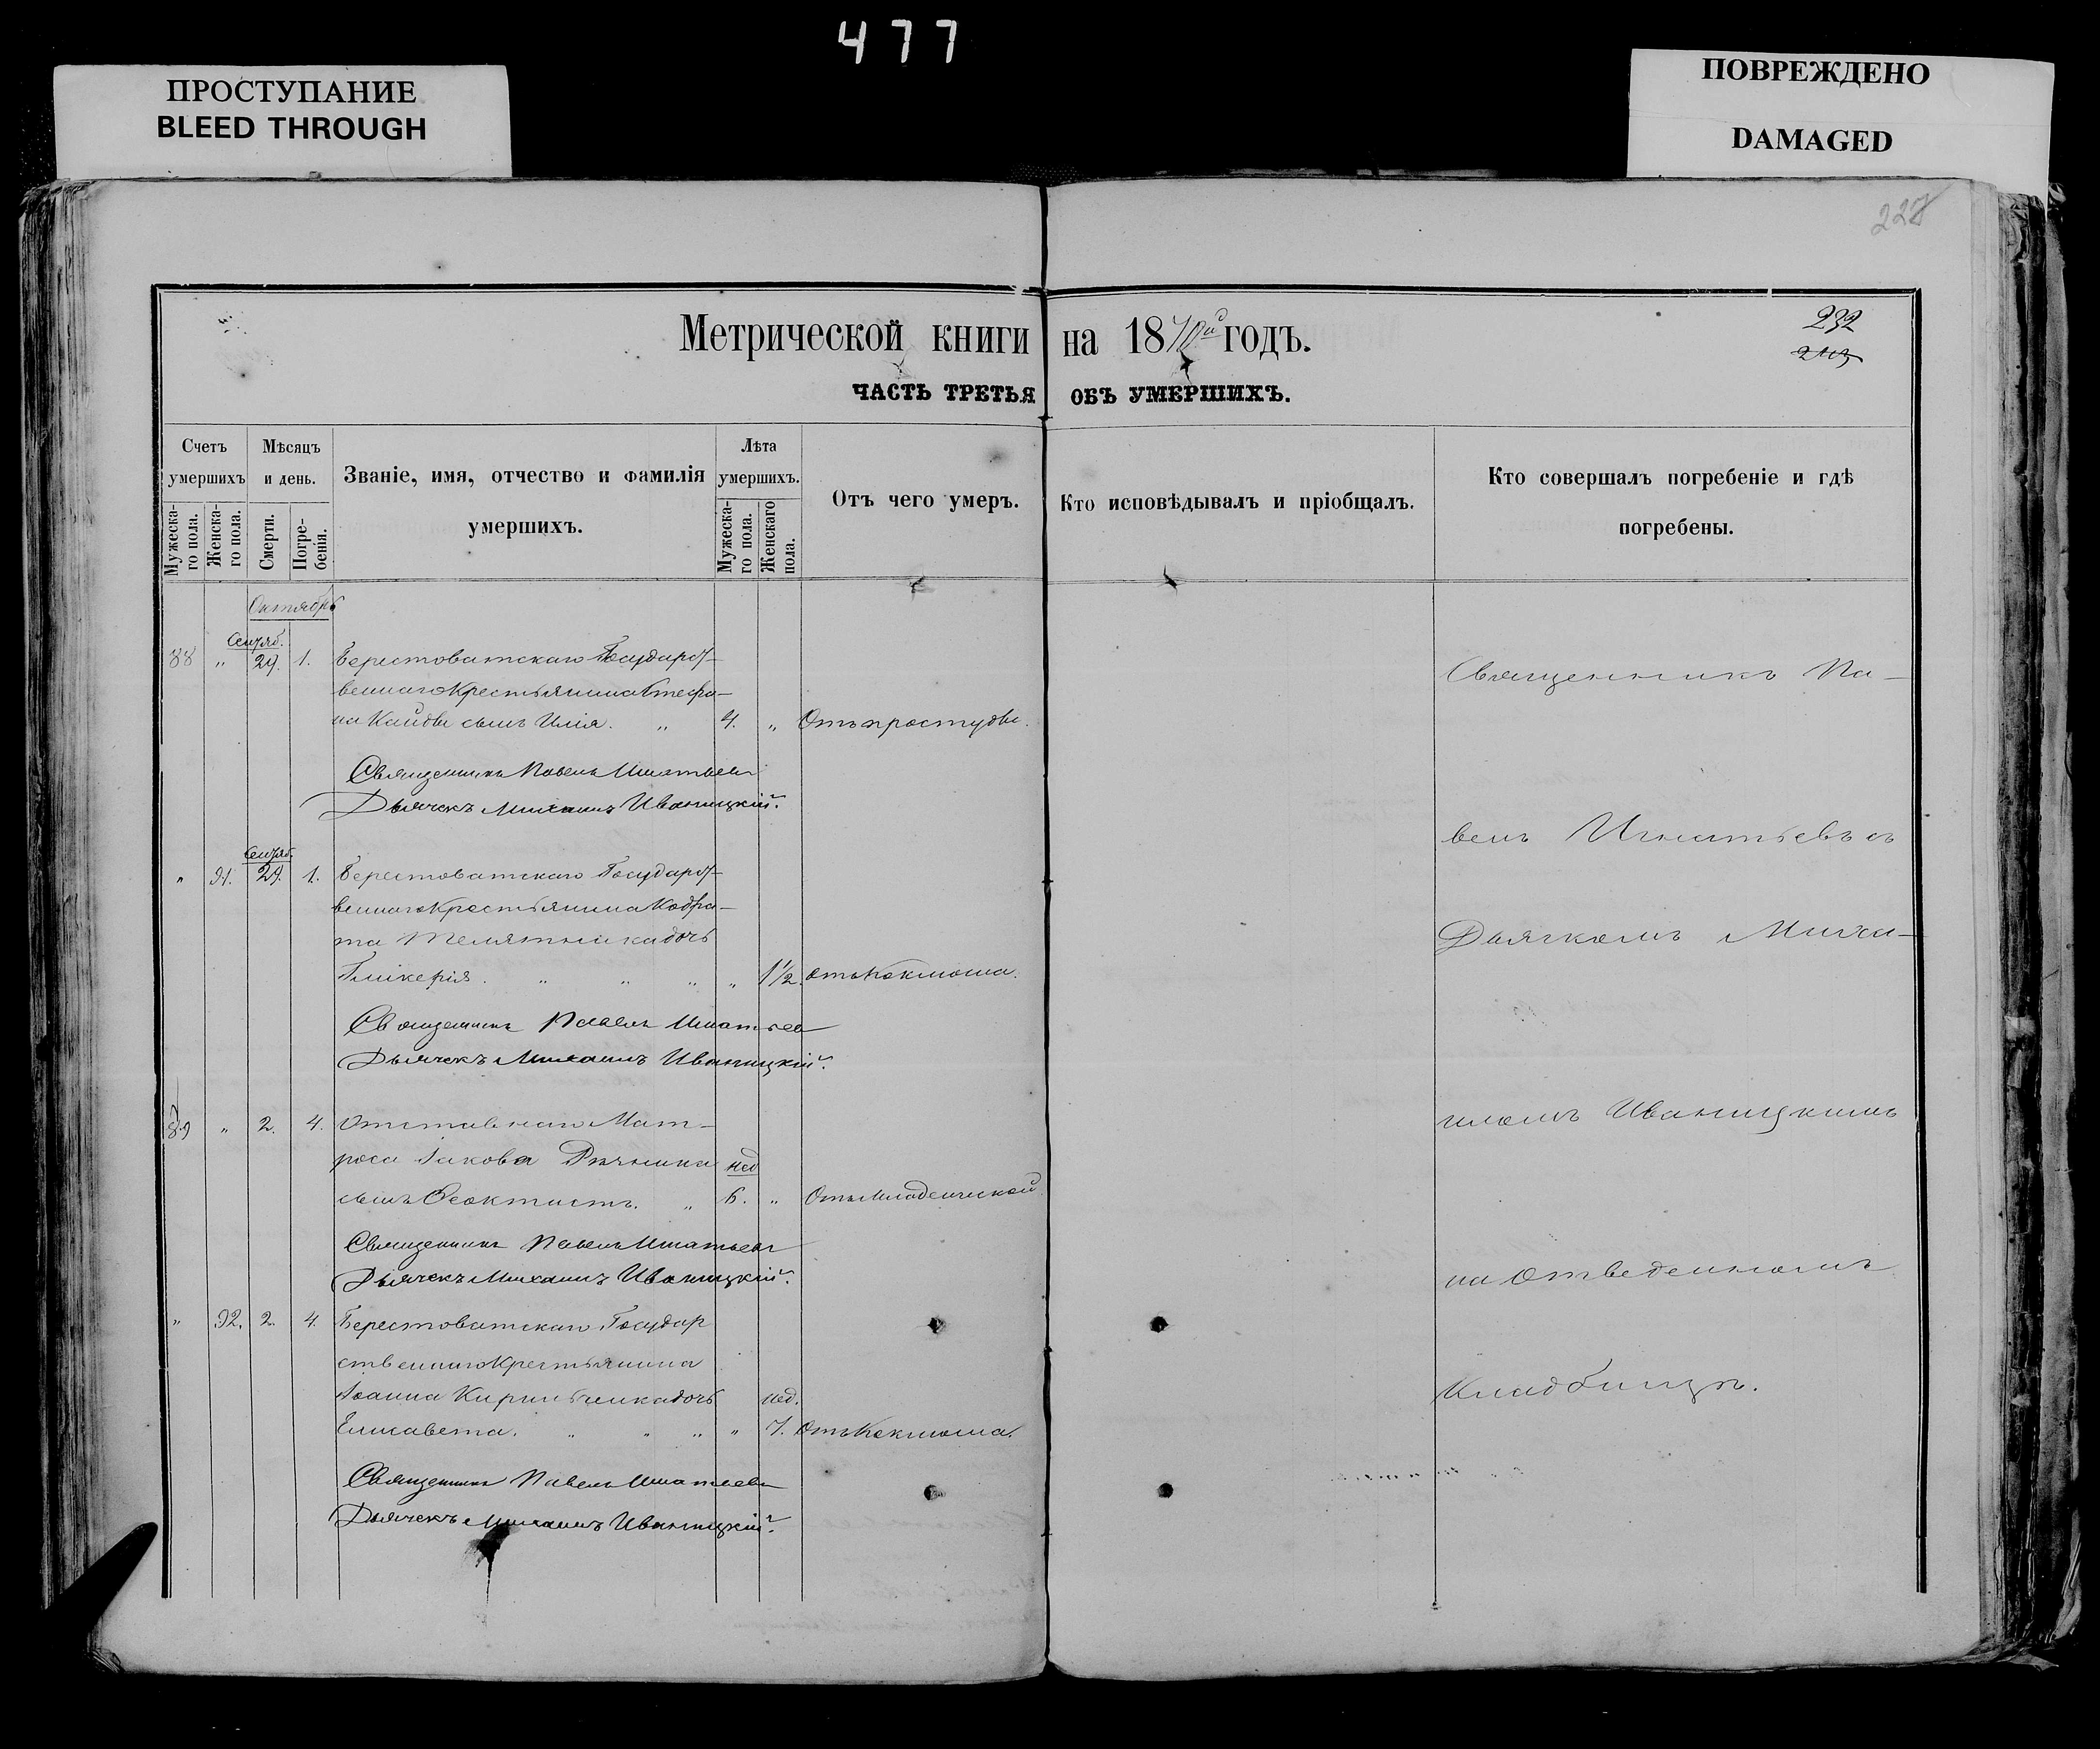 477
ПРОСТУПАНИЕ
BLEED THROUGH
ПОВРЕЖДЕНО
DAMAGED
232
Метрической книги на 1870й годъ.
ЧАСТЬ ТРЕТЬЯ ОБЪ УМЕРШИХЪ.
Счетъ умершихъ
Мужеска-го пола.
Женска-го пола.
Мѣсяцъ и день.
Смерти.
Погре-бенія.
Званіе, имя, отчество и фамилія умершихъ.
Лѣта умершихъ.
Мужеска-го пола.
Женскаго пола.
Отъ чего умеръ.
Кто исповѣдывалъ и пріобщалъ.
Кто совершалъ погребеніе и гдѣ погребены.
Октябрь
Сентяб.
88 " 29. 1. Берестоватскаго Государст-
веннаго Крестьянина Стефа-
на Кайды сынъ Илія. " 4. " Отъ простуды.
Священникъ Павелъ Игнатьевъ
Дьячекъ Михаилъ Иваницкій.
Сентяб.
" 91. 29. 1. Берестоватскаго Государст-
веннаго Крестьянина Кодра-
та Телятника дочь
Гликерія. " " " " 1½. отъ Коклюша.
Священникъ Павелъ Игнатьев
Дьячекъ Михаилъ Иваницкій.
89 " 2. 4. Отставнаго Мат-
роса Іакова нед
сынъ Ѳеоктистъ. " 6. " Отъ Младенческой
Священникъ Павелъ Игнатьевъ
Дьячекъ Михаилъ Иваницкій.
" 92. 2. 4. Берестоватскаго Государ
ственнаго Крестьянина
Іоанна Кирильченка дочь нед.
Елисавета. " " " " 7. Отъ Коклюша.
Священникъ Павелъ Игнатьевъ
Дьячекъ Михаилъ Иваницкій.
Священникъ Па-
велъ Игнатьевъ съ
Дьячкомъ Миха-
иломъ Иваницкимъ
на Отведенномъ
Кладбищѣ.